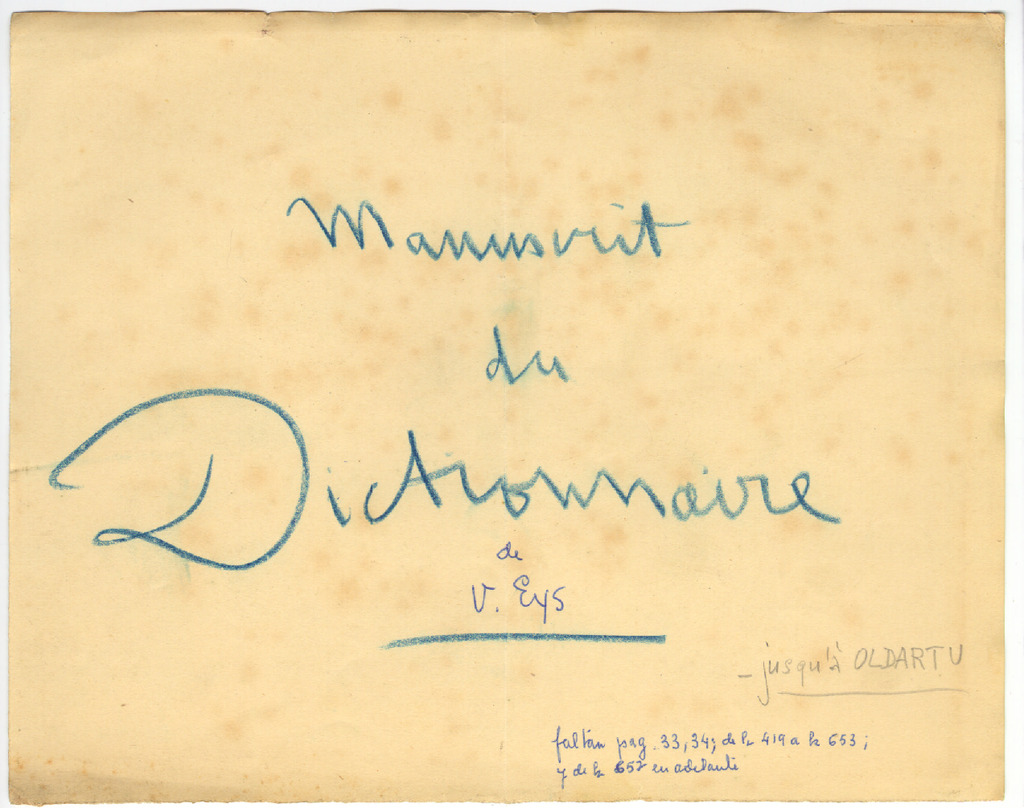 Manuscrit
du
Dictionnaire
de
V. Eys
- jusqu'à OLDARTU
faltan pag. 33, 34; de la 419 a la 653;
y de la 657 en adelante